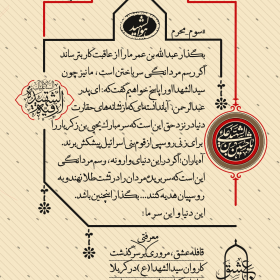 سوم محرم
بگذار عبدالله بن عمر ما را از عاقبت کار بترساند
اگر رسم مردانگی سر باختن است، ما نیز چون
سیدالشهدا او را پاسخ خواهیم گفت که: «ای پدر
عبدالرحمن، آیا ندانسته‌ای که از نشانه‌های حقارت
دنیا در نزد حق این است که سر مبارک یحیی بن زکریا را
برای زنی روسپی از قوم بنی اسراییل پیشکش بردند.
آه یاران! اگر در این دنیای وارونه، رسم مردانگی
این است که سر بریده مردان را در تشت طلا نهند و به
روسپیان هدیه کنند... بگذار اینچنین باشد.
این دنیا و این سر ما!
معرفتی
قافله عشق، مروری بر سرگذشت
کاروان سیدالشهدا (ع) در کربلا